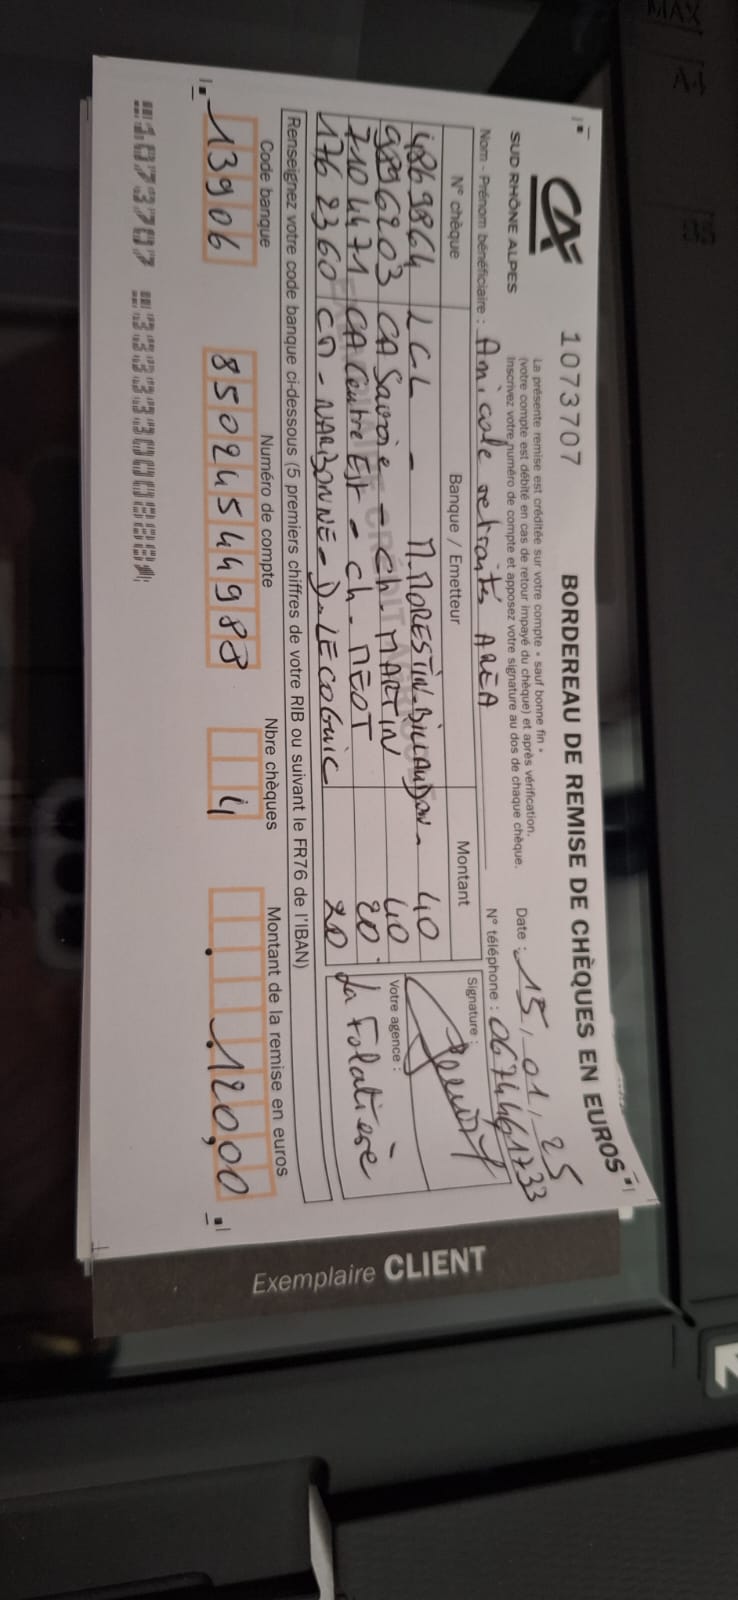 CA
1073707
BORDEREAU DE REMISE DE CHÈQUES EN EUROS
SUD RHÔNE ALPES
La présente remise est créditée sur votre compte « sauf bonne fin »
(votre compte est débité en cas de retour impayé du chèque) et après vérification.
Inscrivez votre numéro de compte et apposez votre signature au dos de chaque chèque.
Date : 15/01/25
Nom - Prénom bénéficiaire : Amicale retraités AREA
N° téléphone : 0674461733
N° chèque Banque / Emetteur Montant
4869864 LCL - M. MORESTIN-BILLAUDON - 40
9896203 CA Savoie - Ch. MARTIN 40
7104471 CA Centre Est - Ch. MEOT 20
1762360 CM - NARBONNE - D. LECOGUIC 20
Signature :
Votre agence :
La Folatière
Renseignez votre code banque ci-dessous (5 premiers chiffres de votre RIB ou suivant le FR76 de l'IBAN)
Code banque Numéro de compte Nbre chèques Montant de la remise en euros
13906 85024544988 4 120,00
Exemplaire CLIENT
MAX
A4